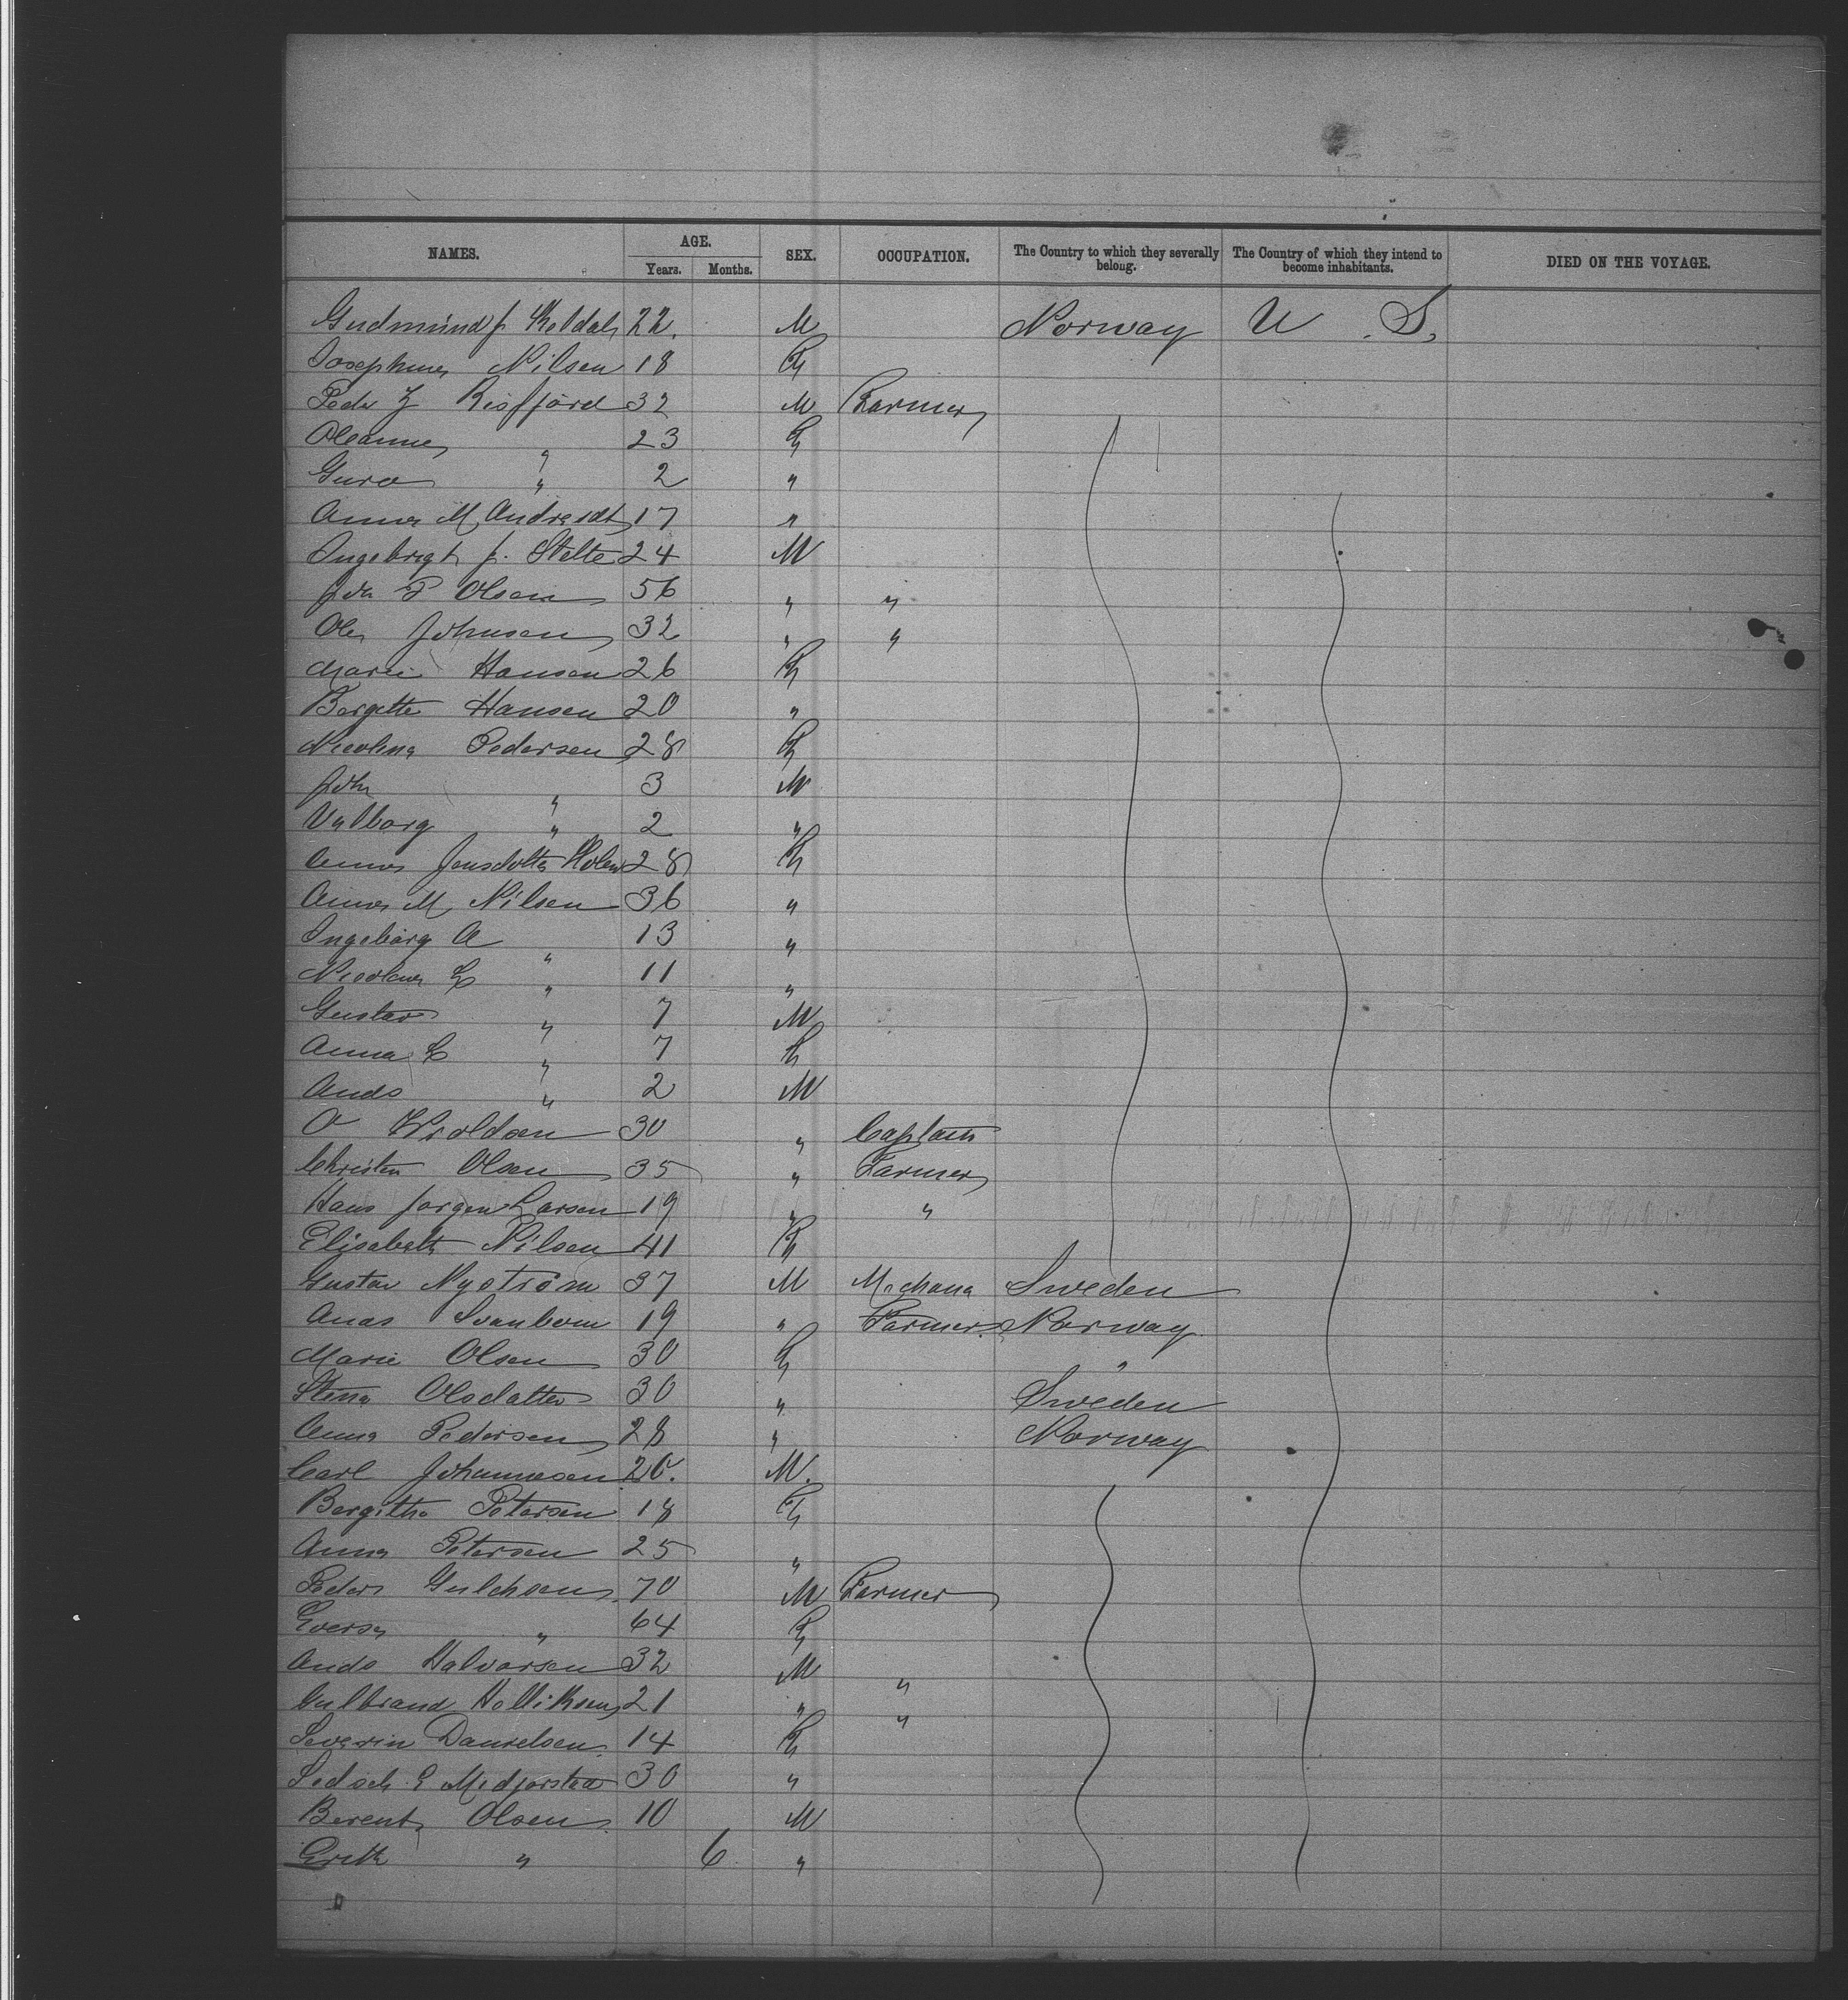 NAMES. AGE. SEX. OCCUPATION. The Country to which they severally belong. The Country of which they intend to become inhabitants. DIED ON THE VOYAGE.
Years. Months.
Gudmund J. 22. M Norway U. S.
Josephine Nilsen 18 F
Peder Z Risfjord 32 M Farmer
Oleanne " 23 F
Guro " 2 "
Anna M 17 "
Ingebrigt J. Stelte 24 M
John P Olsen 56 " "
Ole Johnsen 32 " "
Marie Hansen 26 F
Bergette Hansen 20 "
Nicolina Pedersen 28 F
John " 3 M
Valborg " 2 "
Anna Jonsdotter Holen 28 F
Anna M Nilsen 36 "
Ingeborg A " 13 "
Nicoline C " 11 "
Gustav " 7 M
Anna C " 7 F
Ands " 2 M
O Wroldsen 30 " Captain
Christen Olsen 35 " Farmer
Hans Jorgen Larsen 19 " "
Elisabeth Nilsen 41 F
Gustav Nyström 37 M Mechana Sweden
Anas Svanbom 19 " Farmer Norway
Marie Olsen 30 F "
Stina Olsdatter 30 " Sweden
Anna Pedersen 28 " Norway
Carl Johannesen 20. M.
Bergithe Petersen 18 F
Anna Petersen 25 "
Peder 70 M Farmer
" 64 F
Ands Halvorsen 32 M "
Gulbrand 21 " "
Severin Danielsen 14 F
E Medjorstad 30 "
Berent Olsen 10 M
Greth " 6 "